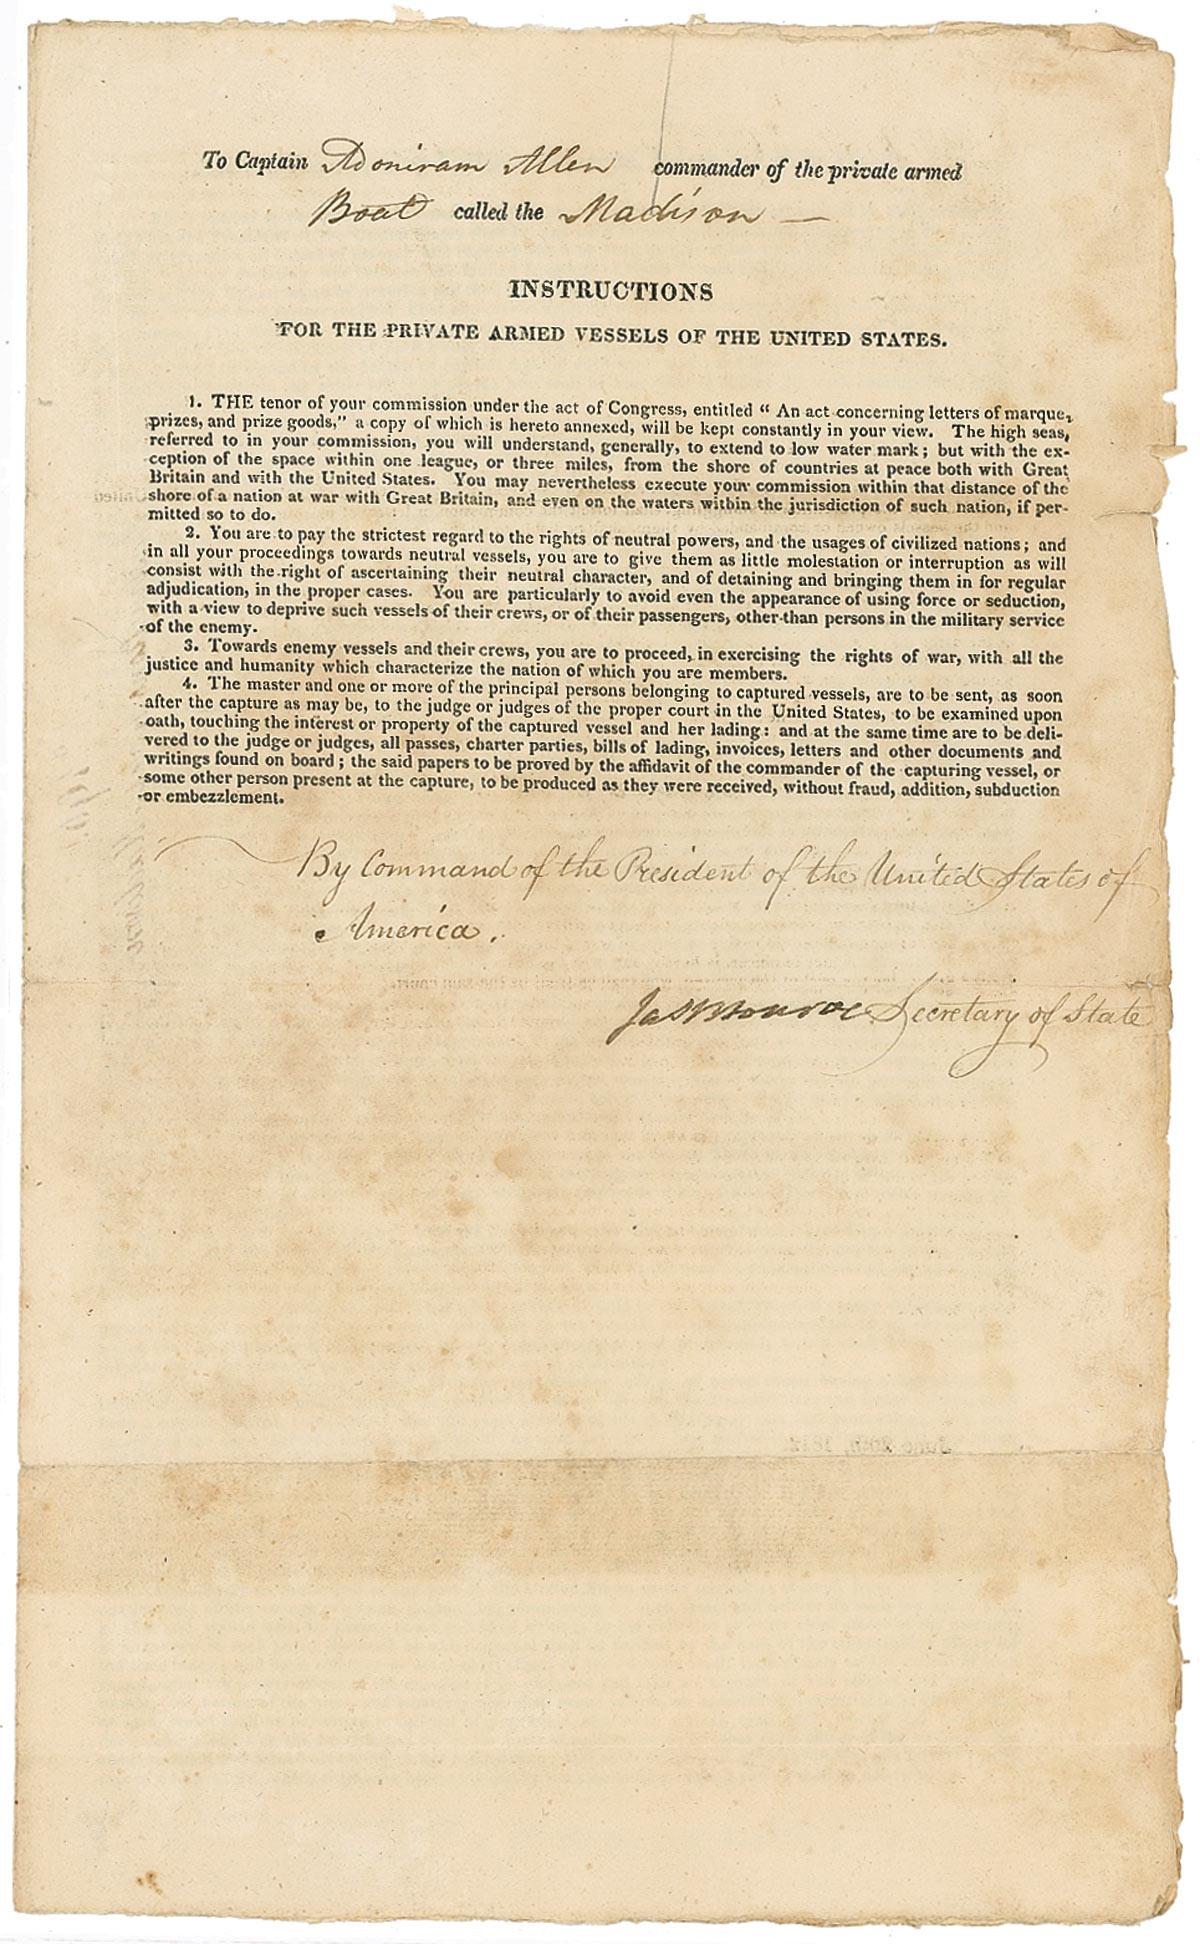 To Captain Adoniram Allen commander of the private armed
Boat called the Madison —
INSTRUCTIONS
FOR THE PRIVATE ARMED VESSELS OF THE UNITED STATES.
1. THE tenor of your commission under the act of Congress, entitled “ An act concerning letters of marque,
prizes, and prize goods,” a copy of which is hereto annexed, will be kept constantly in your view. The high seas,
referred to in your commission, you will understand, generally, to extend to low water mark; but with the ex-
ception of the space within one league, or three miles, from the shore of countries at peace both with Great
Britain and with the United States. You may nevertheless execute your commission within that distance of the
shore of a nation at war with Great Britain, and even on the waters within the jurisdiction of such nation, if per-
mitted so to do.
2. You are to pay the strictest regard to the rights of neutral powers, and the usages of civilized nations; and
in all your proceedings towards neutral vessels, you are to give them as little molestation or interruption as will
consist with the right of ascertaining their neutral character, and of detaining and bringing them in for regular
adjudication, in the proper cases. You are particularly to avoid even the appearance of using force or seduction,
with a view to deprive such vessels of their crews, or of their passengers, other than persons in the military service
of the enemy.
3. Towards enemy vessels and their crews, you are to proceed, in exercising the rights of war, with all the
justice and humanity which characterize the nation of which you are members.
4. The master and one or more of the principal persons belonging to captured vessels, are to be sent, as soon
after the capture as may be, to the judge or judges of the proper court in the United States, to be examined upon
oath, touching the interest or property of the captured vessel and her lading: and at the same time are to be deli-
vered to the judge or judges, all passes, charter parties, bills of lading, invoices, letters and other documents and
writings found on board; the said papers to be proved by the affidavit of the commander of the capturing vessel, or
some other person present at the capture, to be produced as they were received, without fraud, addition, subduction
or embezzlement.
By Command of the President of the United States of
America.
Jas Monroe Secretary of State